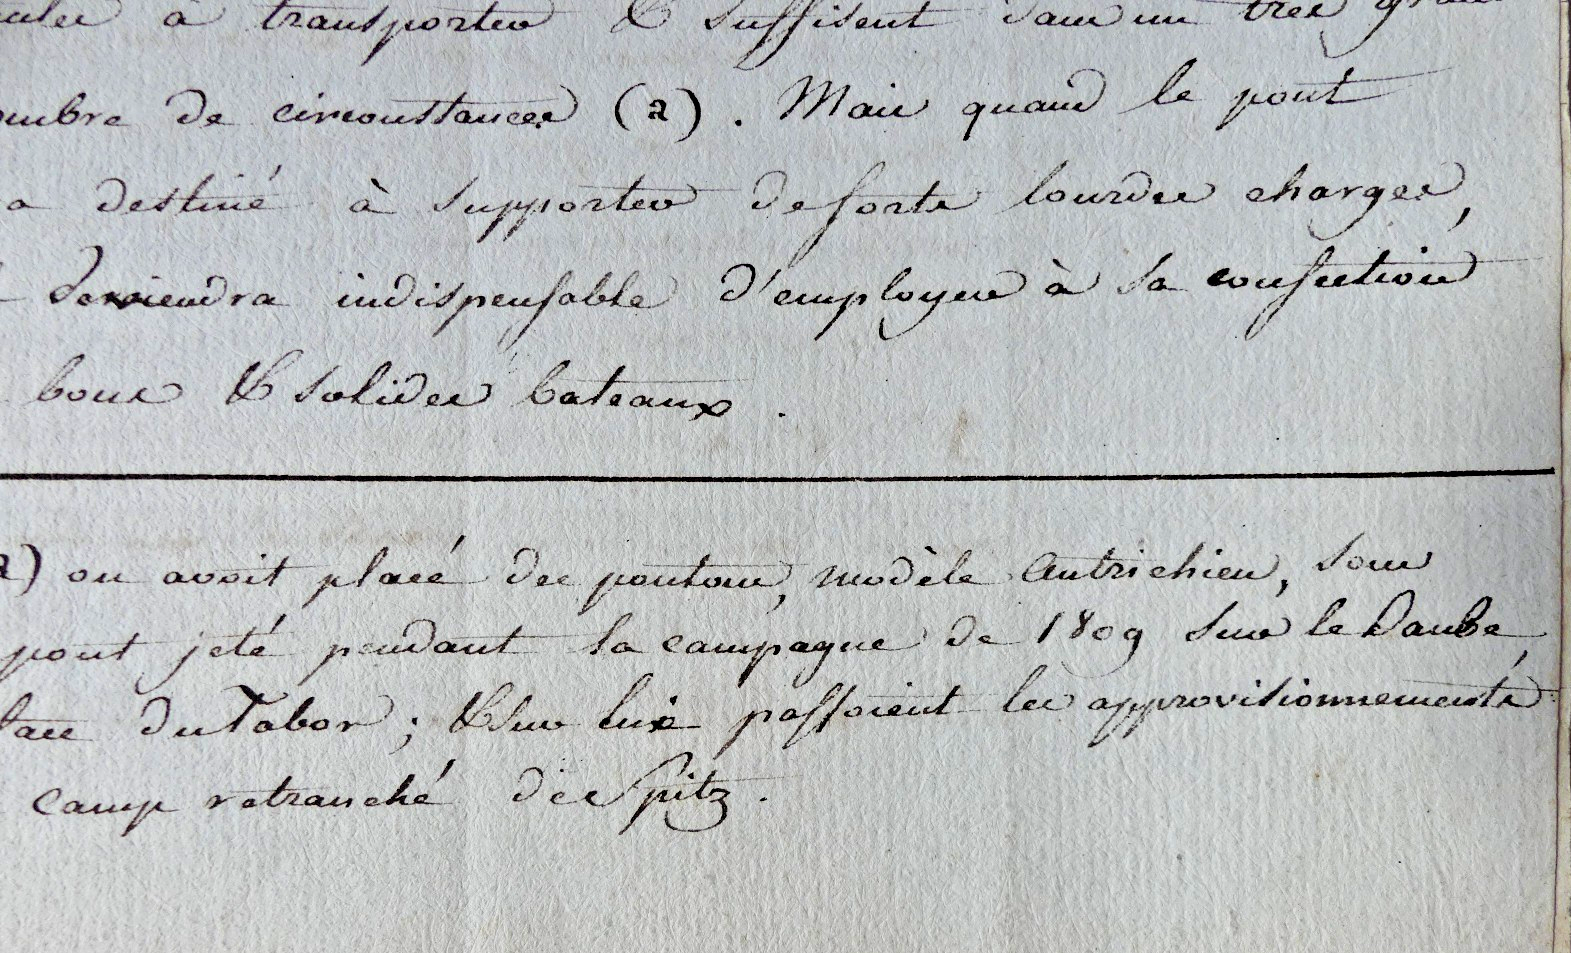 à transporter & suffisent dans un tres
de circonstances (a). Mais quand le pont
destiné à supporter de forte lourdes charges,
deviendra indispensable d'employer à sa confection
bons & solides bateaux.
a) on avoit placé des pontons, modèle autrichien, sous
pont jeté pendant la campagne de 1809 sur le Danube,
du Tabor; & sur lui passoient les approvisionnements
camp retranché de Spitz.